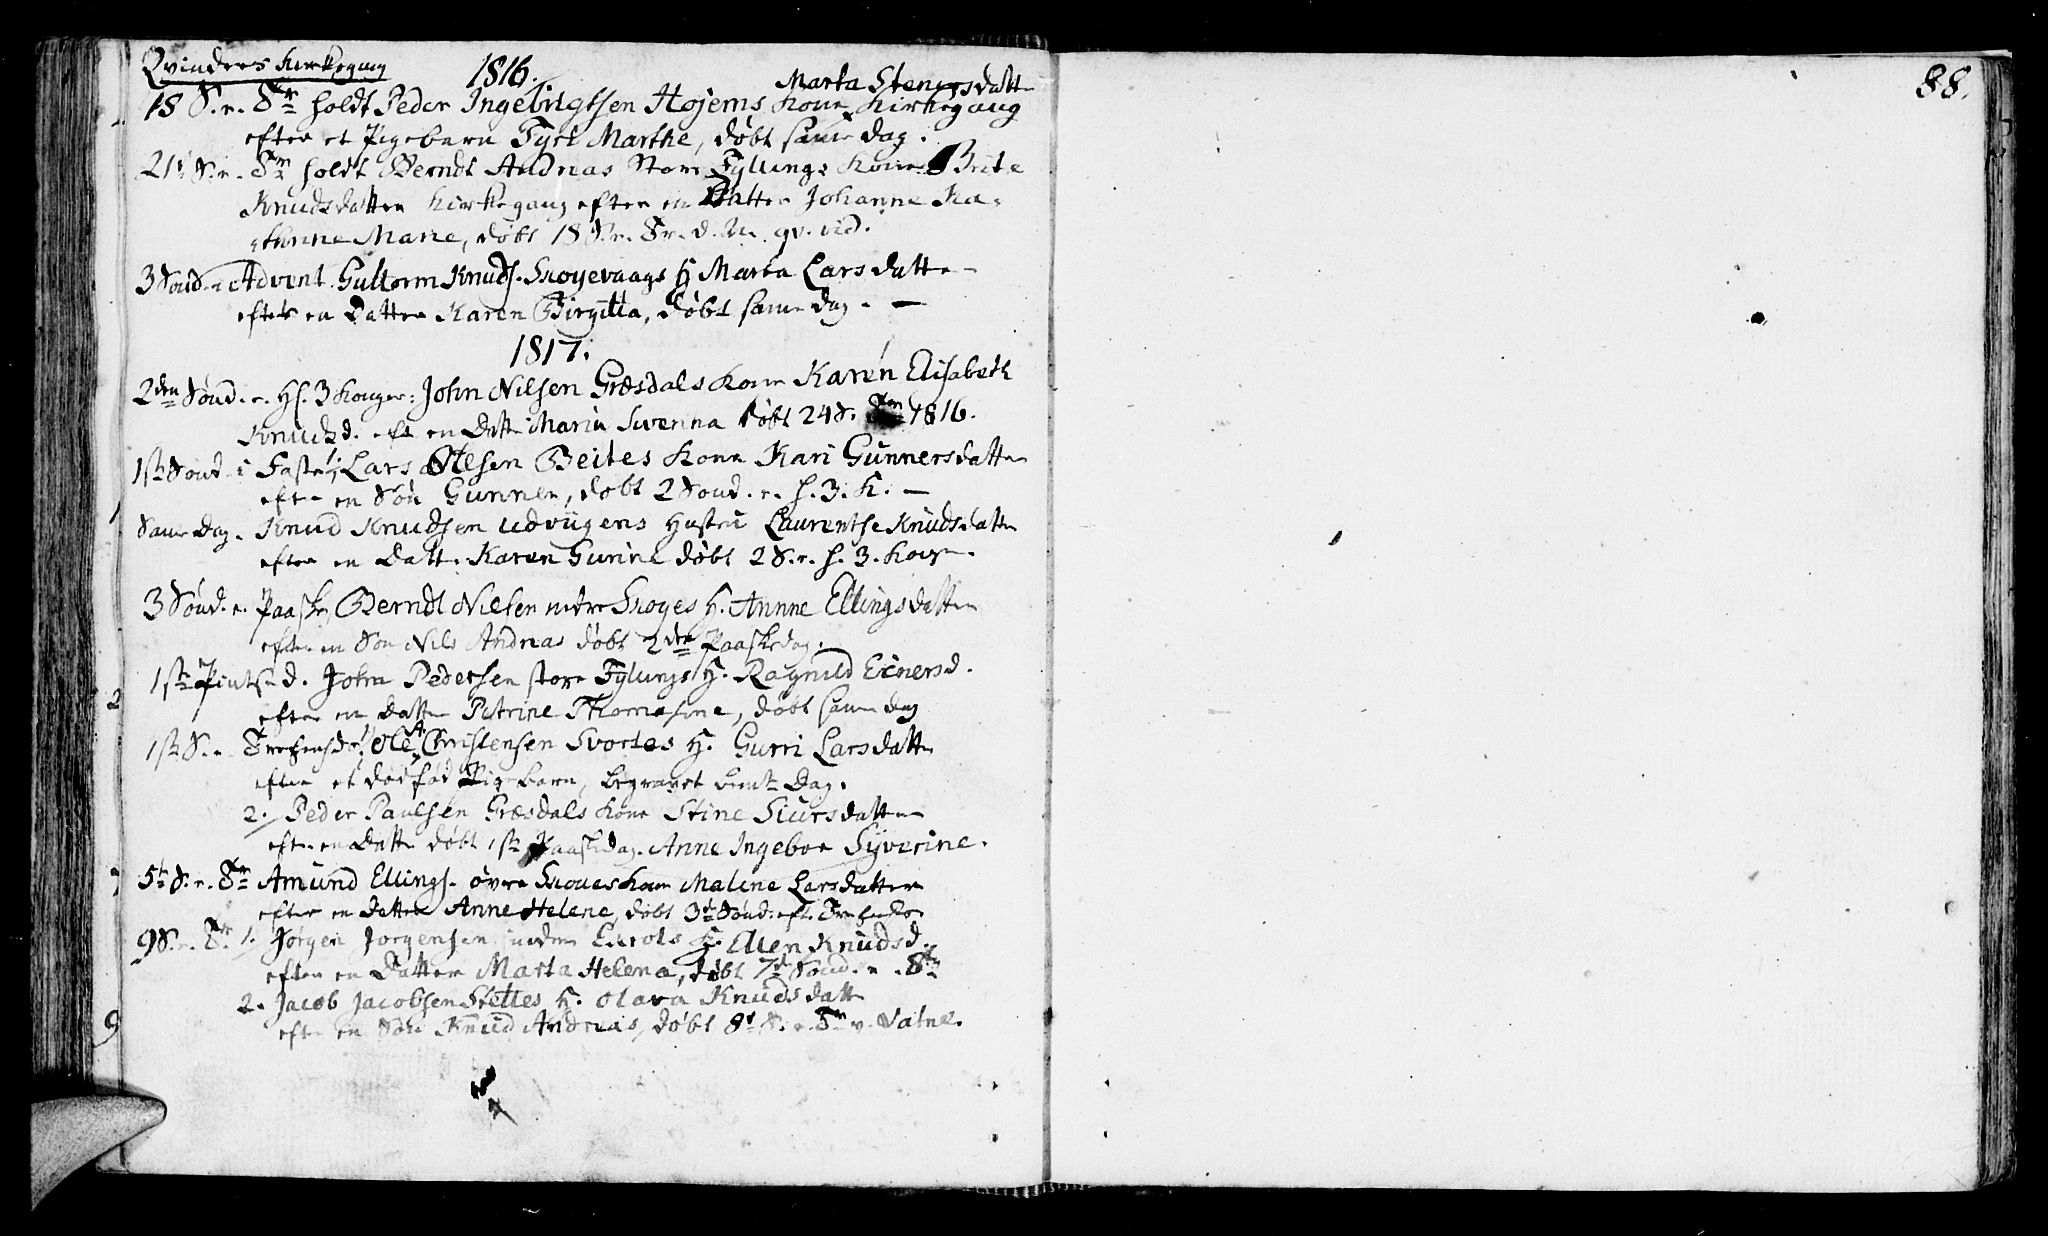 Qvinders Kirkegang
1816.
Marta Stenersdatte
18 S. e. Tr holdt Peder Ingebrigtsen Hojems Kone Kirkegang
efter et Pigebarn Marthe, døbt same dag.
21 S. e. Tr holdt Berndt Andreas Store Fyllings Kone Brite
Knudsdatter Kirkegang efter en Datter Johanne Ka-
thrine Marie, døbt 18 S. e. Tr. d. qv. vid.
3 Sønd. i Advent Guttorm Knuds. Skoyevaags H Marta Larsdatte
efter en Datter Karen Birgitta, døbt same dag. —
1817.
2den Sønd. e. Hl. 3 Konger: John Nilsen Græsdals Kone Karen Elisabeth
Knudsd. eft en Datte Maria Sverina døbt 24 S. Tr 1816.
1ste Sønd i Faste, Lars Olesen Beites Kone Kari Gunnersdatte
efte en Søn Gunner, døbt 2 Sønd. e. h. 3. K. —
Same Dag. Knud Knudsen Udvigens Hustru Laurentse Knudsdatte
efter en Datt. Karen Gurine døbt 2 S. e. h. 3. Kong.
3 Sønd. e. Paaske, Berndt Nilsen nedre Skoges H. Annne Ellingsdatter
efter en Søn Nils Andreas døbt 2den Paaskedag.
1ste Pintsed. John Pedersen store Fyllings H. Ragnild Einersd.
efter en Datter Petrine Thomasine, døbt same dag
1ste S. e. Trehensd. 1, Ole A Christensen Svortes H. Gurri Larsdatte
efter et dødfød Pigebarn, begravet Dag.
2. Peder Paulsen Græsdals Kone Stine Siursdatter
efter en Datte døbt 1ste Paaskedag. Anne Ingebor Syverine.
5te S. e. Tr Amund Ellings. øvre Skoges Kone Malene Larsdatter
efter en datter Anne Helene, døbt 3die Sønd. eft. Trehed.
9 S. e. Tr. 1. Jørgen Jørgensen H. Ellen Knudsd.
efter en Datter Marta Helena, døbt 7de Sønd. e. Tr
2. Jacob Jacobsen Slettes H. Olava Knudsdatt
efte en Søn Knud Andreas, døbt 8d S. e. Tr v. Vatne.
88.